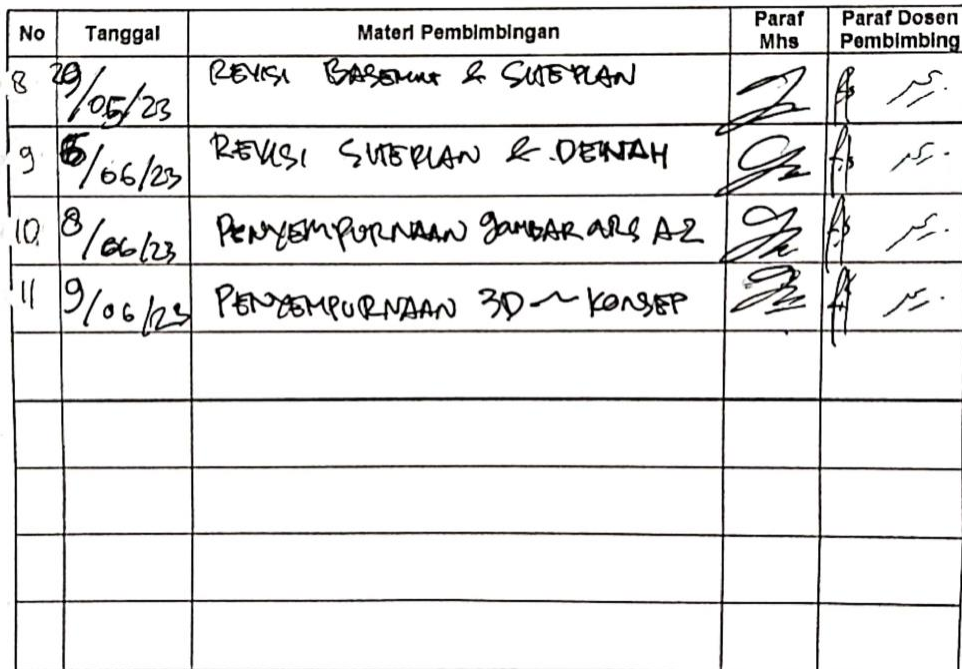 No Tanggal Materi Pembimbingan Paraf Mhs Paraf Dosen Pembimbing
8 29/05/23 REVISI BASEMENT & SITEPLAN
9 6/06/23 REVISI SITEPLAN & DENAH
10. 8/06/23 PENYEMPURNAAN gAMBAR ARS A2
11 9/06/23 PENYEMPURNAAN 3D ~ KONSEP